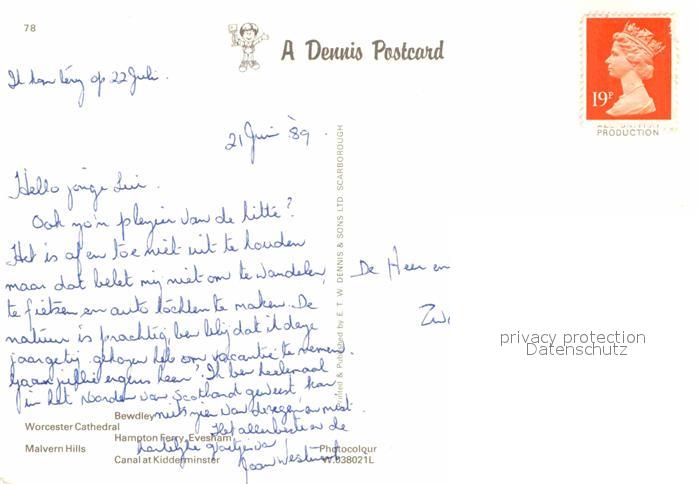 78
A Dennis Postcard
Ik kom terug op 22 Juli.
19P
PRODUCTION
21 Juni '89.
Hello jonge Lui.
Ook zo'n plezier van de hitte?
Het is af en toe niet uit te houden
maar dat belet mij niet om te wandelen,
te fietsen, en auto tochten te maken. De
natuur is prachtig, ben blij dat ik deze
jaargetij gekozen heb om vacantie te nemen.
Gaan jullie ergens heen? Ik ben helemaal
in het Noorden van Scotland geweest, kon
niets zien van de regen en mist.
Het allerbeste en de
hartelijke groetjes van
De Heer en
Printed & Published by E. T. W. DENNIS & SONS LTD. SCARBOROUGH
privacy protection
Datenschutz
Bewdley
Worcester Cathedral
Hampton Ferry, Evesham
Malvern Hills
Canal at Kidderminster
Photocolour
W.038021L